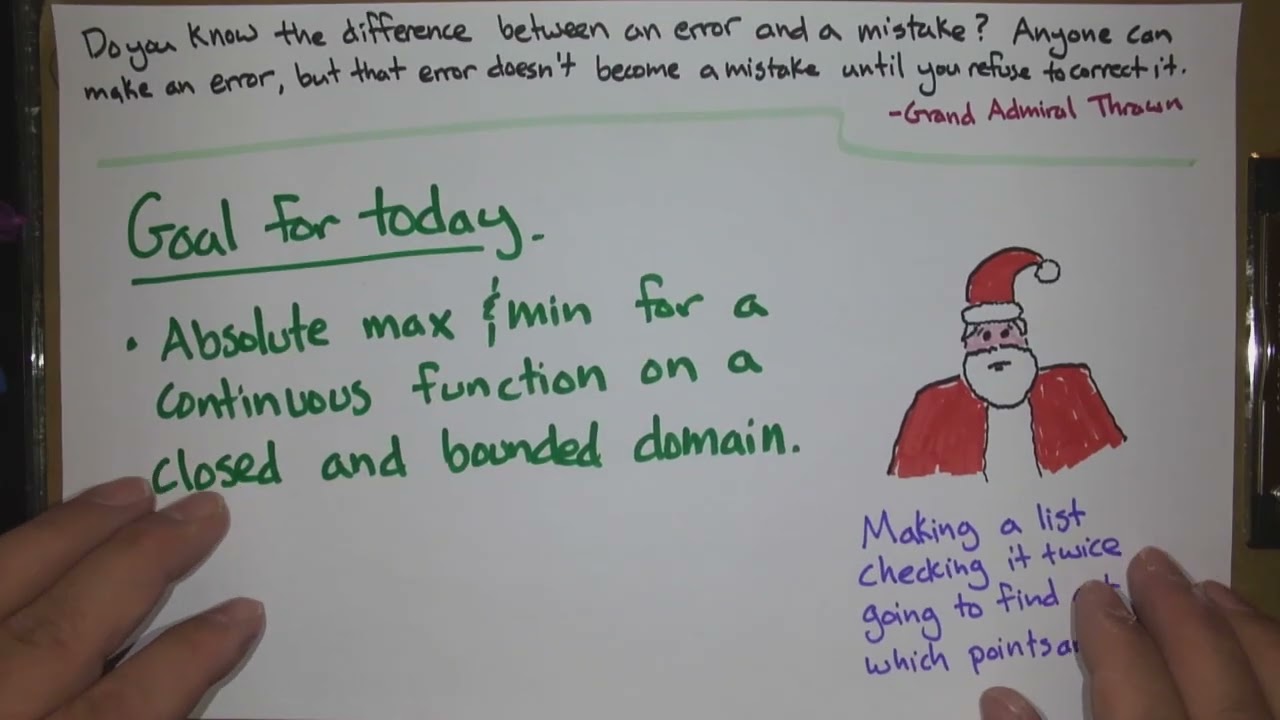 Do you know the difference between an error and a mistake? Anyone can
make an error, but that error doesn't become a mistake until you refuse to correct it.
-Grand Admiral Thrawn
Goal for today.
• Absolute max & min for a
continuous function on a
closed and bounded domain.
Making a list
checking it twice
going to find
which points